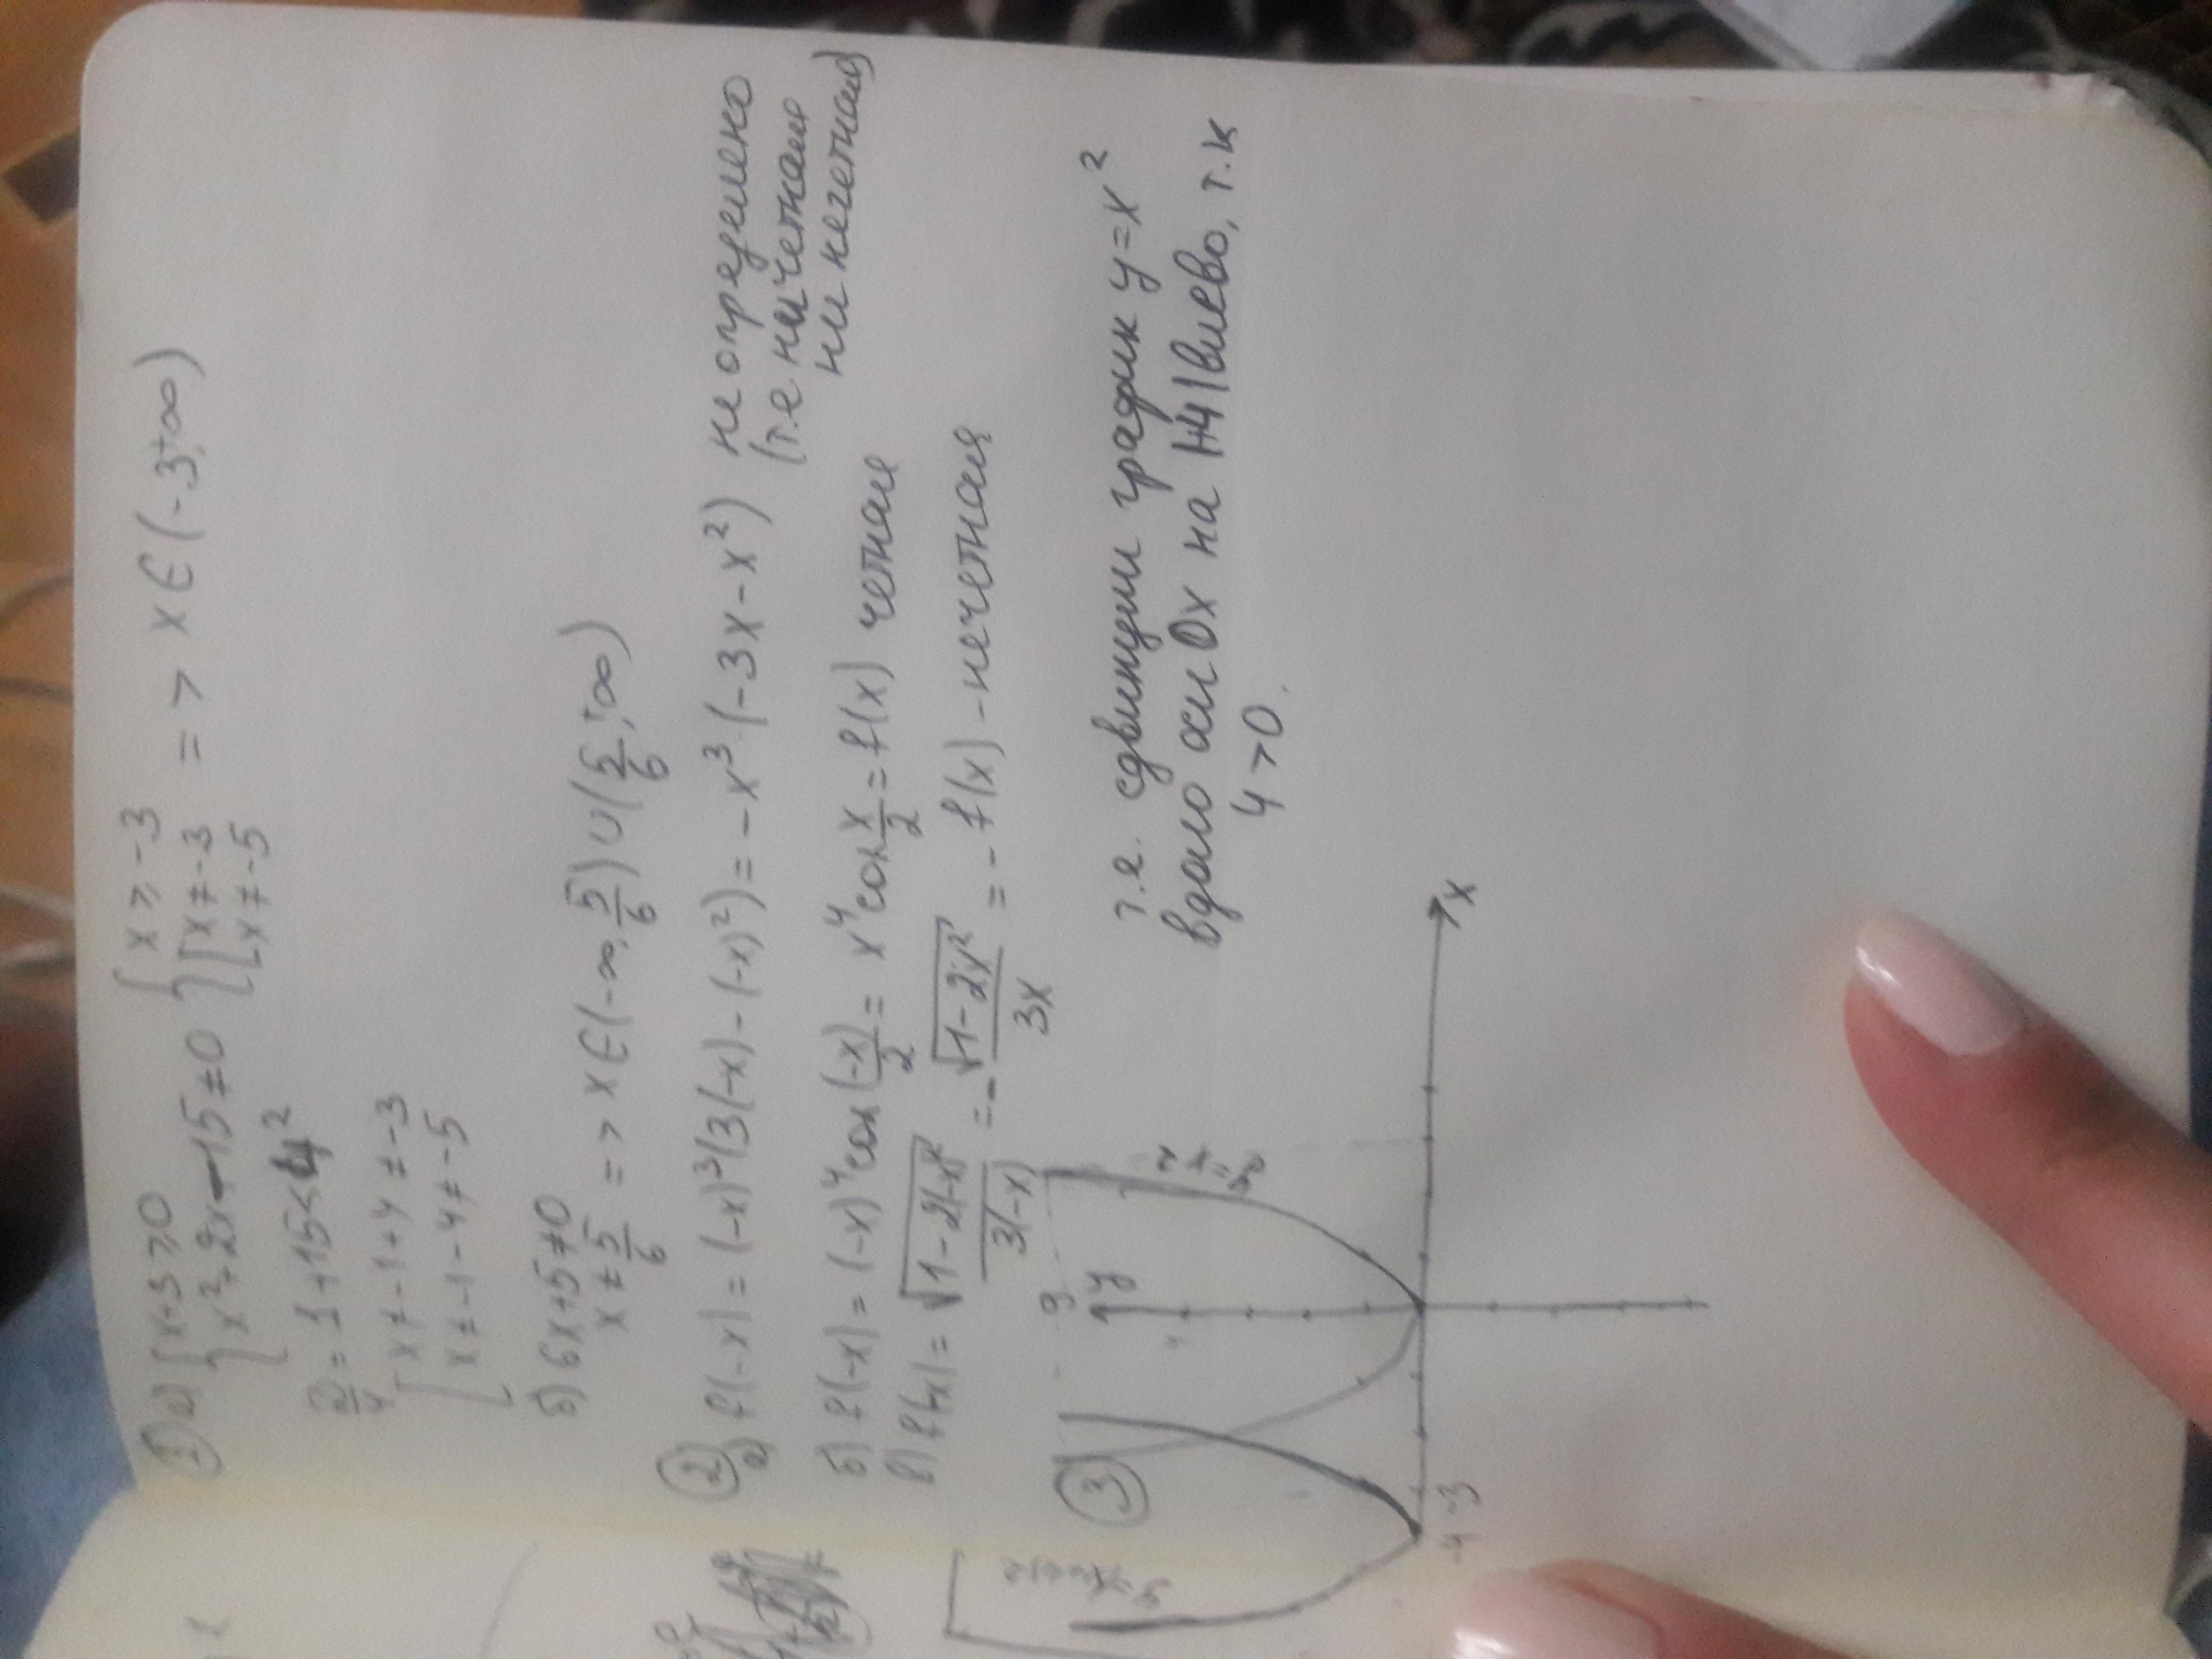 ① а) { x+3≥0 { x ≥ -3
{ x²+2x-15≠0 { [ x≠-3 => x∈(-3;+∞)
[ x≠-5
D/4 = 1+15<4²
[ x≠-1+4≠-3
[ x≠-1-4≠-5
б) 6x+5≠0
x≠5/6 => x∈(-∞;5/6)∪(5/6;+∞)
②
а) f(-x)=(-x)³(3(-x)-(-x)²)=-x³·(-3x-x²) не определено
(т.е ни четная
ни нечетная)
б) f(-x)=(-x)⁴cos(-x)/2=x⁴cos x/2=f(x) четная
в) f(-x)=√(1-2(-x)²)/3(-x)=-√(1-2x²)/3x=-f(x)-нечетная
③
9
y
y=x²
4
x
-4 -3
т.е. сдвинули график y=x²
вдоль оси Ox на |+4| влево, т.к
4>0.